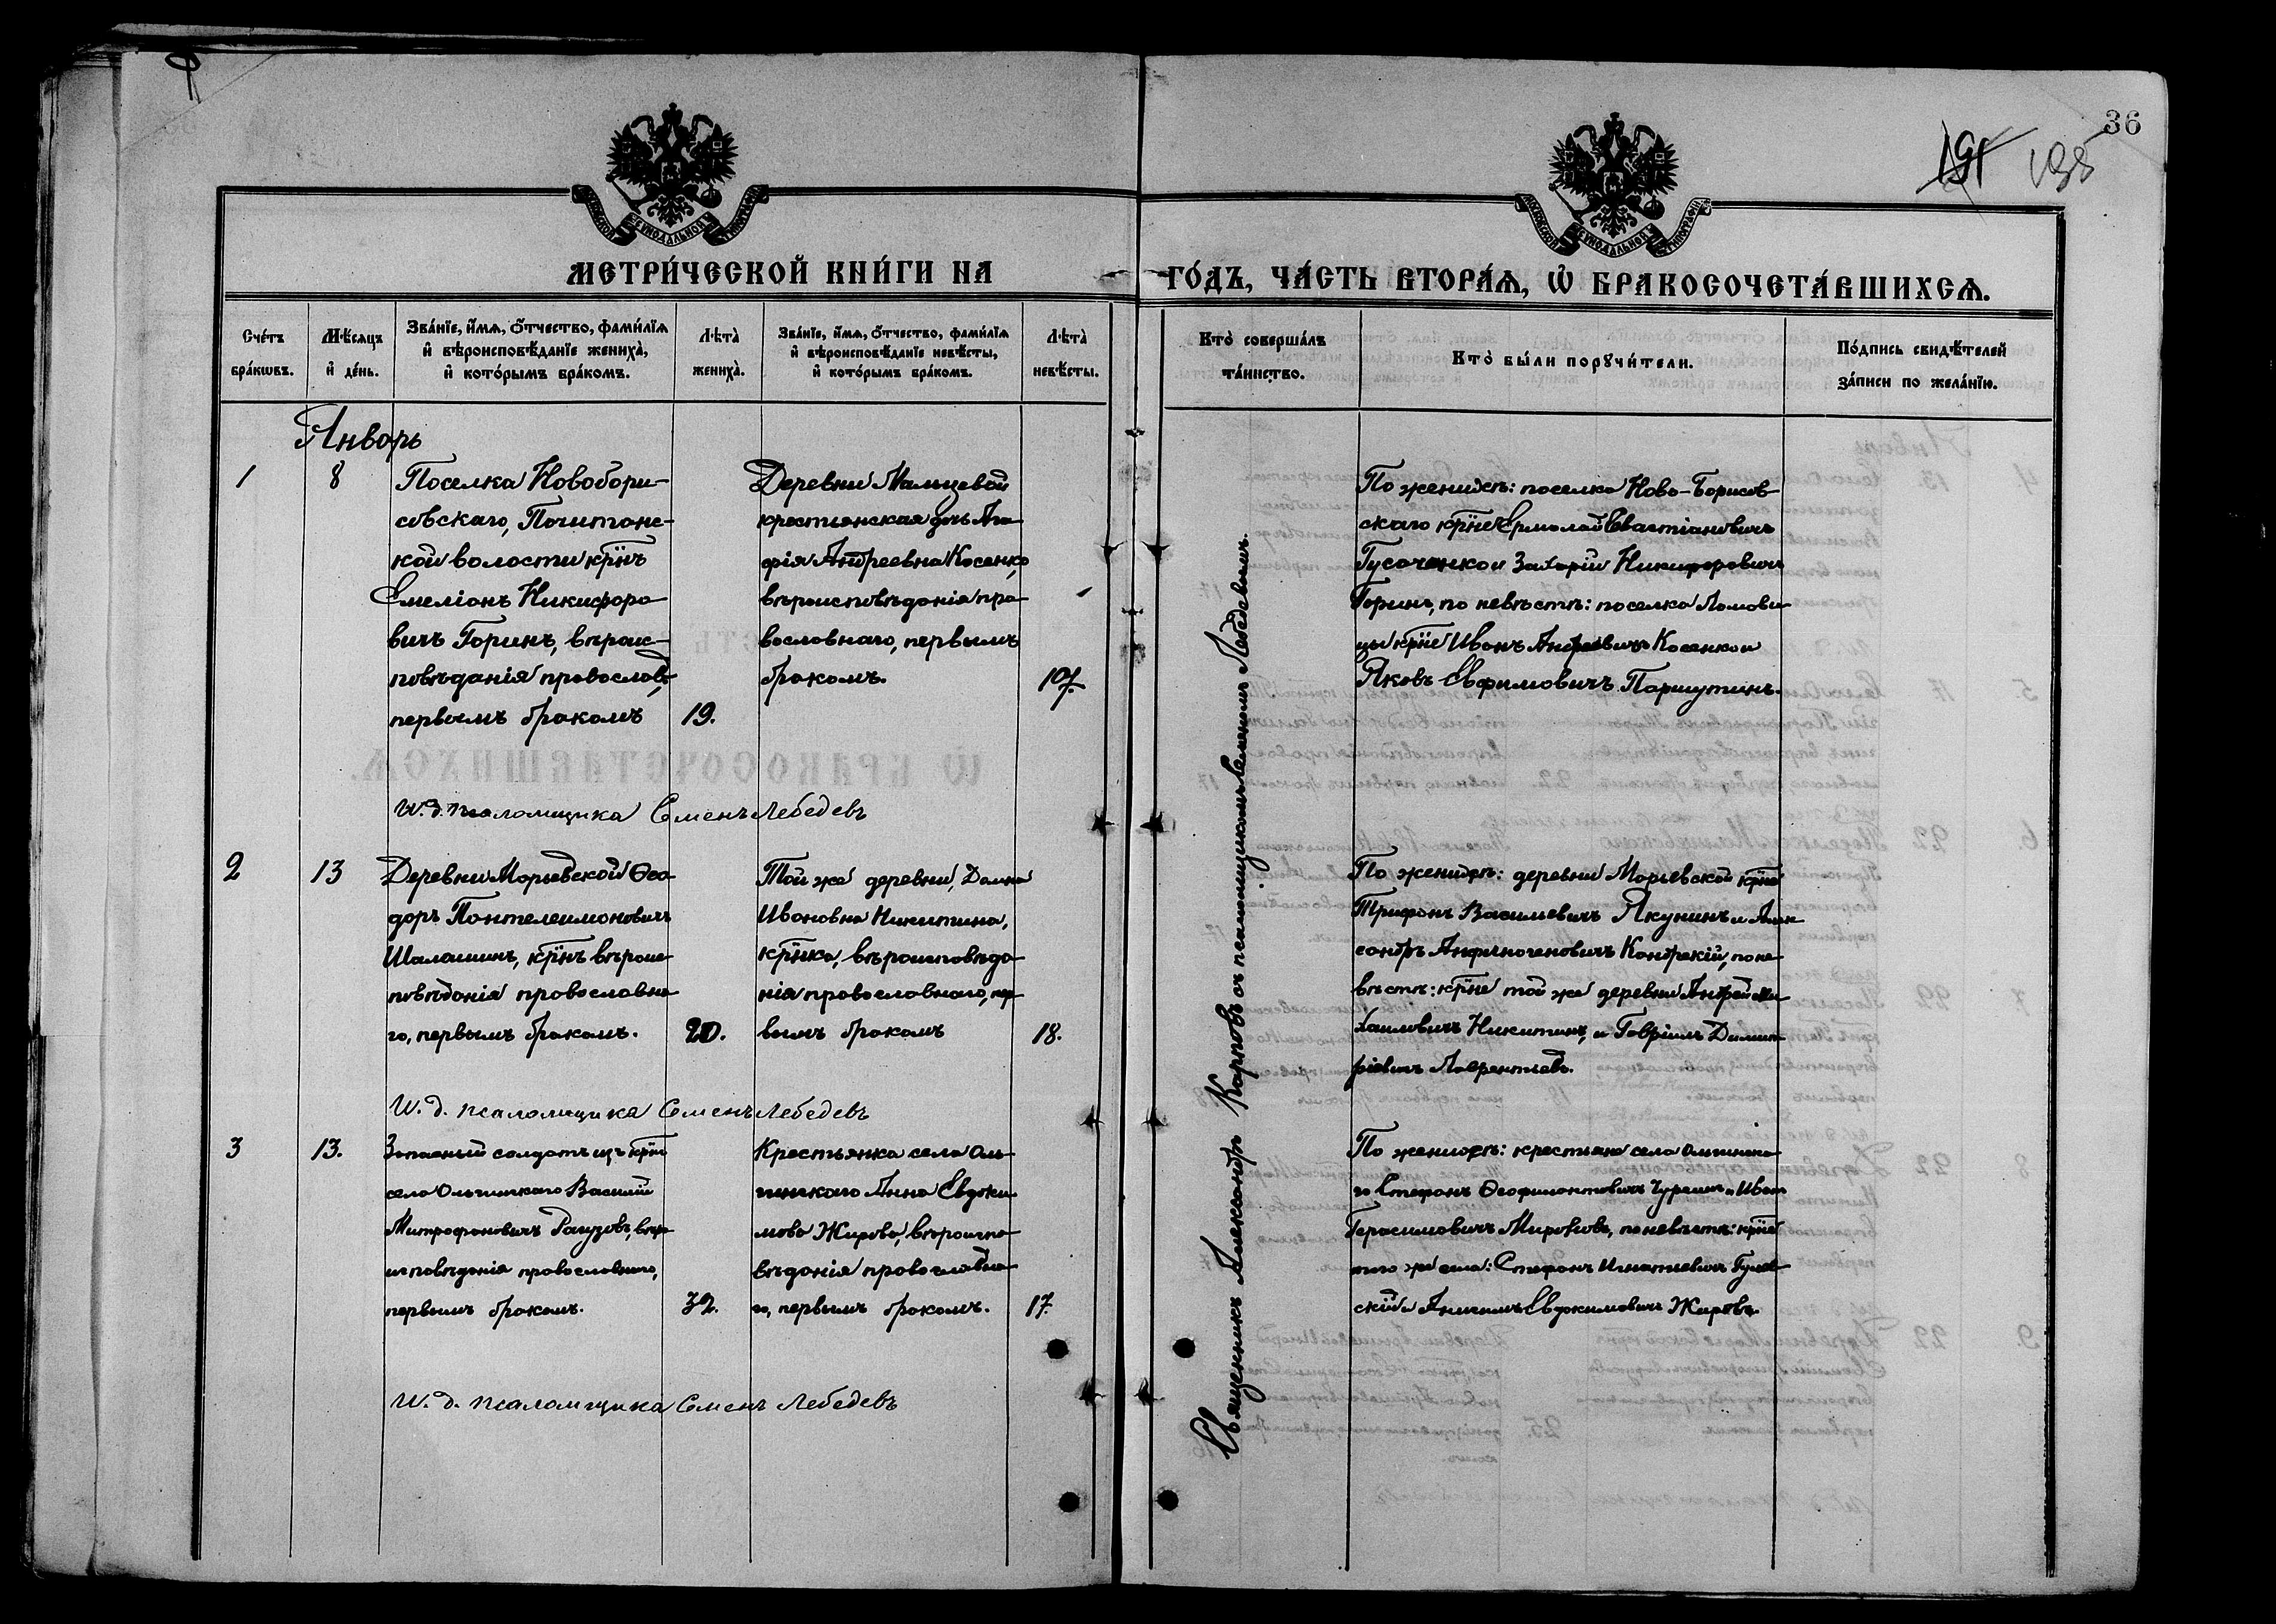 36
191 198
МОСКОВСКОЙ СѴНОДАЛЬНОЙ ТИПОГРАФІИ
МОСКОВСКОЙ СѴНОДАЛЬНОЙ ТИПОГРАФІИ
МЕТРИ́ЧЕСКОЙ КНИ́ГИ НА
ГО́ДЪ, ЧА́СТЬ ВТОРА́Ѧ, Ѡ҆ БРАКОСОЧЕТА́ВШИХСѦ.
Сче́тъ
бра́кѡвъ.
Мѣ́сяцъ
и҆ де́нь.
Зва́нїе, и҆́мѧ, ѻ҆́тчество, фами́лїѧ
и҆ вѣроисповѣ́данїе жениха̀,
и҆ кото́рымъ бра́комъ.
Лѣта̀
жениха̀.
Зва́нїе, и҆́мѧ, ѻ҆́тчество, фами́лїѧ
и҆ вѣроисповѣ́данїе невѣ́сты,
и҆ кото́рымъ бра́комъ.
Лѣта̀
невѣ́сты.
Кто̀ соверша́лъ
та́инство.
Кто̀ бы́ли порꙋчи́тели.
По́дпись свидѣ́телей
за́писи по жела́нїю.
Январь
1
8
Поселка Новобори-
совскаго, Почитанс-
кой волости крнъ
Емеліонъ Никифоро
вичъ Горинъ, вѣроис-
повѣданія православ,
первымъ бракомъ
19.
Деревни Мальцевой
крестьянская дочь Ага
фія Андреевна Косенко,
вѣроисповѣданія пра
вославнаго, первымъ
бракомъ.
По женихѣ: поселка Ново-Борисов
скаго крне Ермолай Евастіановичъ
Гусаченко и Захарій Никифоровичъ
Горинъ, по невѣстѣ: поселка Ломови
цы крне Иванъ Андреевичъ Косенко и
Яковъ Евфимовичъ Паршутинъ.
И. д. псаломщика Семенъ Лебедевъ
2
13
Деревни Марьевской Ѳео
доръ Пантелеимоновичъ
Шаламинъ, крнъ вѣроис
повѣданія православна
го, первымъ бракомъ.
20.
Той же деревни, Домна
Ивановна Никитина,
крнка, вѣроисповѣда
нія православнаго, пер
вымъ бракомъ
18.
По женихѣ: деревни Марьевской крне
Трифонъ Васильевичъ Якунинъ и Алек
сандръ Анфиногеновичъ Кондрскій, по не
вѣстѣ: крне той же деревни Андрей Ми
хаиловичъ Никитинъ, и Гавріилъ Димит
ріевичъ Лаврентьевъ.
И. д. псаломщика Семенъ Лебедевъ
3
13.
Запасный солдатъ изъ крнъ
села Ольгинскаго Василій
Митрофановичъ Рагузовъ, вѣро
исповѣданія православнаго,
первымъ бракомъ.
32.
Крестьянка села Оль
гинскаго Анна Евдоки
мова Жирова, вѣроиспо
вѣданія православна
го, первымъ бракомъ.
17.
По женихѣ: крестьяне села Ольгинска
го Стефанъ Ѳеофилактовичъ и Иванъ
Герасимовичъ по невѣстѣ: крне
того же села: Стефанъ Игнатьевичъ
скій и Евдокимовичъ Жировъ.
И. д. псаломщика Семенъ Лебедевъ
Священникъ Александръ Карповъ съ псаломщикомъ Семеномъ Лебедевымъ.